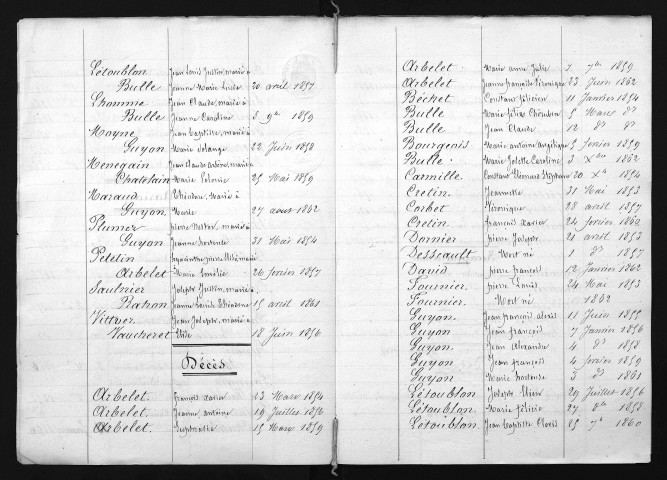 Létoublon Jean Louis Justin, marié à
Bulle Jeanne Marie Lucie 20 avril 1857
Lhomme Jean Claude, marié à
Bulle Jeanne Caroline 8 9re 1859
Moyne Jean Baptiste, marié à
Guyon Marie Solange 22 Juin 1858
Menegain Jean Claude Arsène, marié à
Chatelain Marie 25 Mai 1859
Maraud marié à
Guyon Marie 27 aout 1862
Plumez pierre Victor, marié à
Guyon Jeanne hortense 31 Mai 1854
Petetin hyacinthe pierre marié
Arbelet Marie 26 fevrier 1857
Saulnier Joseph Justin, marié à
Jeanne Louise 15 avril 1861
Vittver Jean Joseph, marié à
Vaucheret Elise 18 Juin 1856
Décès
Arbelet françois Xavier 13 Mars 1854
Arbelet. Jeanne antoine 19 Juillet 1856
Arbelet. 15 Mars 1859
Arbelet. Marie anne Julie 7 7re 1859
Arbelet Jeanne françoise Véronique 23 Juin 1862
Béchet Constant félicien 11 Janvier 1854
Bulle Marie félixe 5 Mars do
Bulle Jean Claude 12 do do
Bourgeois Marie antoine angélique 5 fevrier 1859
Bulle. Marie Josette Caroline 3 Xbre 1862
Carmille. Constant Léonard Stéphane 20 Xre 1854
Cretin Jeannette 31 Mai 1853
Corbet Véronique 28 avril 1857
Cretin françois Xavier 24 fevrier 1860
Dornier pierre Joseph 21 avril 1853
Desseault Mort né 1 do 1857
David pierre françois 12 Janvier 1862
Fournier pierre Louis 24 Mai 1853
Fournier. Mort né 1862
Guyon Jean françois alexis 11 Juin 1855
Guyon Jean françois 7 Janvier 1856
Guyon. Jean Alexandre 4 do 1858
Guyon Jean françois 4 fevrier 1859
Guyon Marie hortense 5 do 1861
Létoublon Joseph 29 Juillet 1856
Létoublon. Marie félicie 27 8re 1858
Létoublon. Jean Baptiste Clovis 25 7re 1860